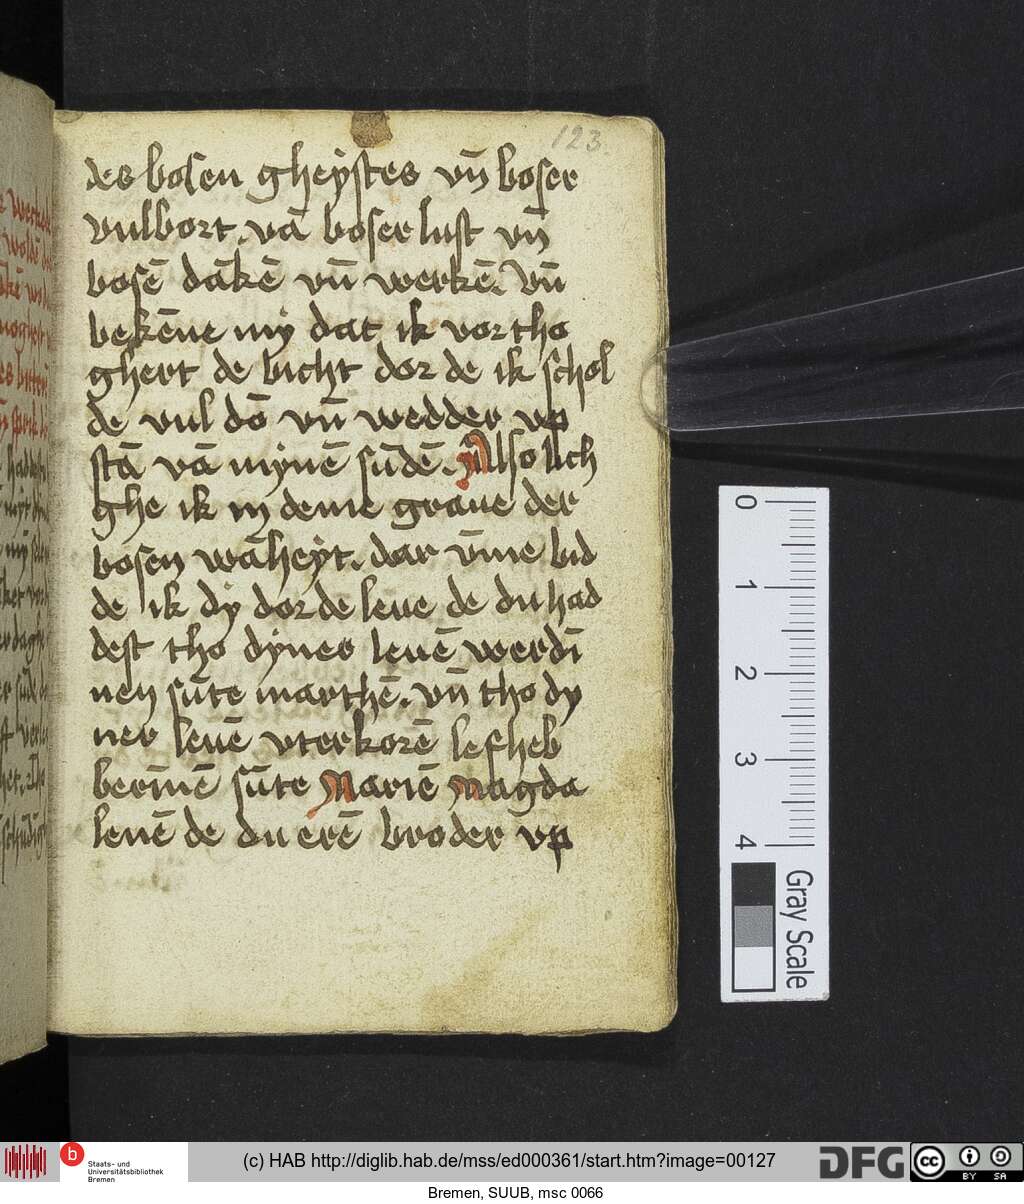 123.
des bosen gheÿstes vn̄ boser
vulbort. vā boser lust vn̄
bosē dākē vn̄ werkē. Vn̄
bekēne mÿ dat ik vor tho
ghert de bicht dor de ik schol
de vul dō vn̄ wedder vp
stā vā mÿnē sūdē. Also lich
ghe ik in deme graue der
bosen wāheÿt. dar v̄me bid
de ik dÿ dor de leue de du had
dest tho dÿner leuē werdī
nen sūte marthē. vn̄ tho dy
ner leuē vterkorē lefheb
berīnē sūte Mariē Magda
lenē de du erē broder vp
0
1
2
3
4
Gray Scale
b
Staats- und
Universitätsbibliothek
Bremen
(c) HAB http://diglib.hab.de/mss/ed000361/start.htm?image=00127
DFG
cc BY SA
Bremen, SUUB, msc 0066